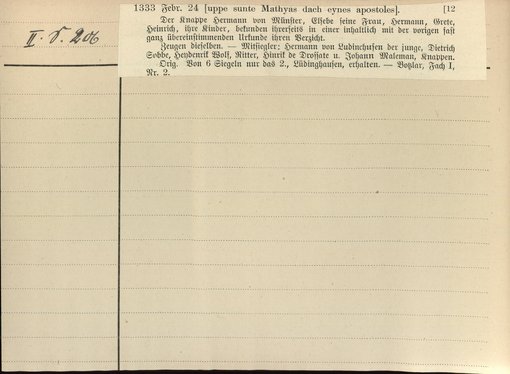 1333 Febr. 24 [uppe sunte Mathyas dach eynes apostoles]. [12
II. S. 206
Der Knappe Hermann von Münster, Elsebe seine Frau, Hermann, Grete,
Heinrich, ihre Kinder, bekunden ihrerseits in einer inhaltlich mit der vorigen fast
ganz übereinstimmenden Urkunde ihren Verzicht.
Zeugen dieselben. — Mitsiegler: Hermann von Ludinchusen der junge, Dietrich
Sobbe, Heydenrik Wolf, Ritter, Hinrik de Drossate u. Johann Maleman, Knappen.
Orig. Von 6 Siegeln nur das 2., Lüdinghausen, erhalten. — Botzlar, Fach I,
Nr. 2.